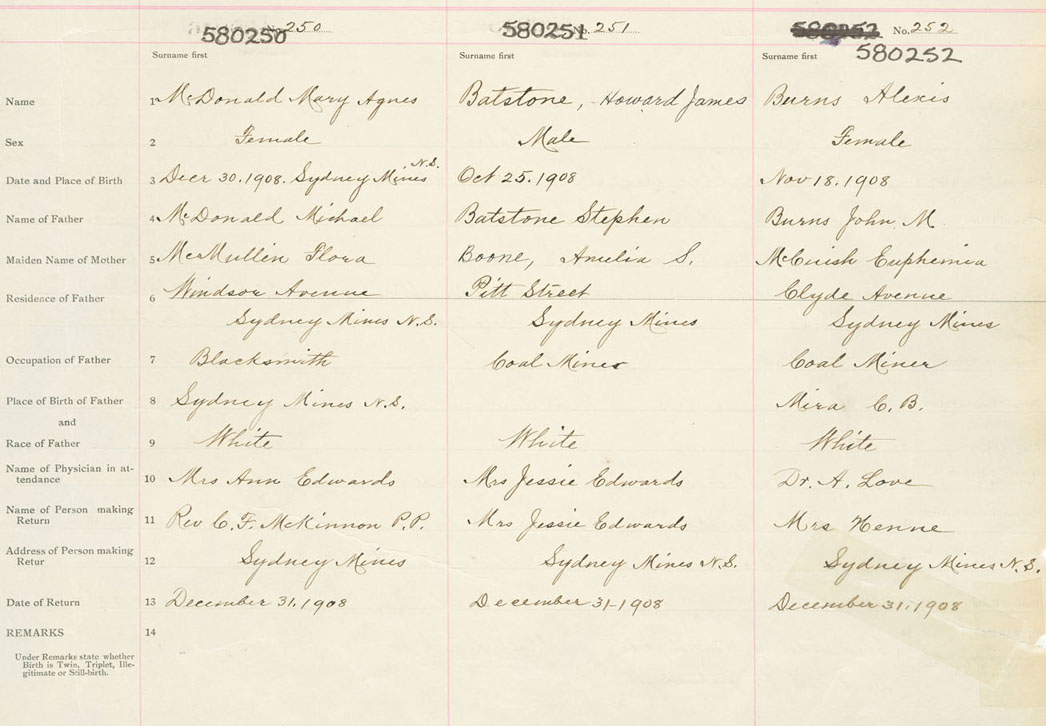 580250 No. 250 580251 No. 251 580252 No. 252
580252
Surname first Surname first Surname first
Name 1 McDonald Mary Agnes Batstone, Howard James Burns Alexis
Sex 2 Female Male Female
N.S.
Date and Place of Birth 3 Decr 30.1908. Sydney Mines Oct 25.1908 Nov 18.1908
Name of Father 4 McDonald Michael Batstone Stephen Burns John M.
Maiden Name of Mother 5 McMullin Flora Boone, Amelia S. McCuish Euphemia
Residence of Father 6 Windsor Avenue Pitt Street Clyde Avenue
Sydney Mines N.S. Sydney Mines Sydney Mines
Occupation of Father 7 Blacksmith Coal Miner Coal Miner
Place of Birth of Father 8 Sydney Mines N.S. Mira C.B.
and
Race of Father 9 White White White
Name of Physician in at-
tendance 10 Mrs Ann Edwards Mrs Jessie Edwards Dr. A. Love
Name of Person making
Return 11 Rev C. F. McKinnon P.P. Mrs Jessie Edwards Mrs
Address of Person making
Retur 12 Sydney Mines Sydney Mines N.S. Sydney Mines N.S.
Date of Return 13 December 31.1908 December 31-1908 December 31.1908
REMARKS 14
Under Remarks state whether
Birth is Twin, Triplet, Ille-
gitimate or Still-birth.